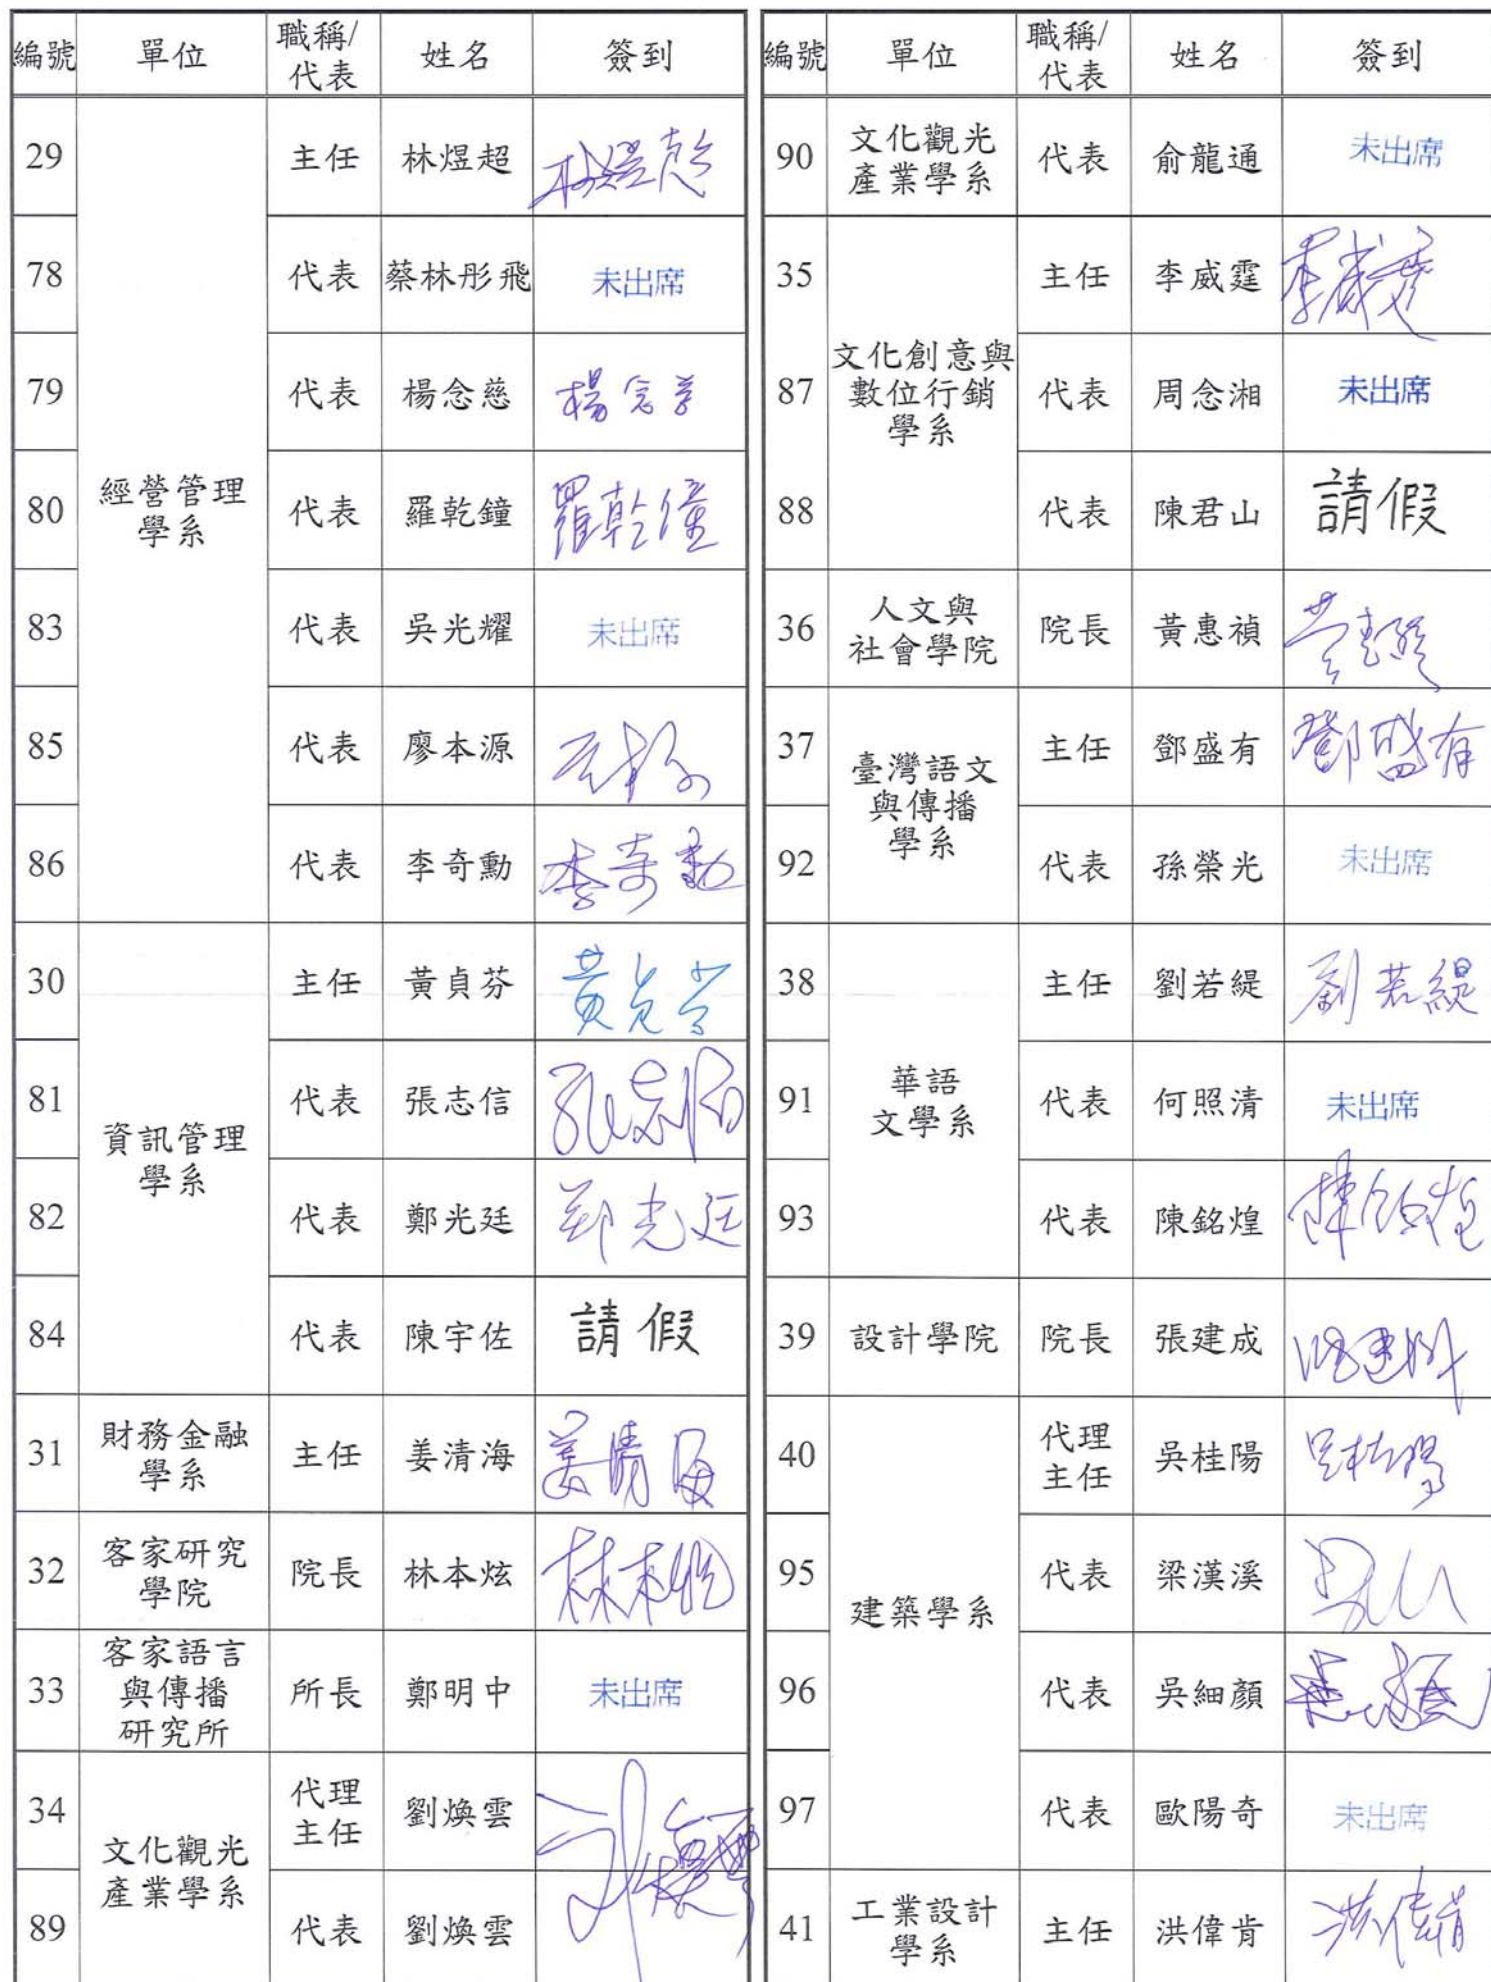 編號 單位 職稱/代表 姓名 簽到
29 經營管理學系 主任 林煜超 林煜超
78 代表 蔡林彤飛 未出席
79 代表 楊念慈 楊念慈
80 代表 羅乾鐘 羅乾鐘
83 代表 吳光耀 未出席
85 代表 廖本源
86 代表 李奇勳 李奇勳
30 資訊管理學系 主任 黃貞芬 黃貞芬
81 代表 張志信 張志信
82 代表 鄭光廷 鄭光廷
84 代表 陳宇佐 請假
31 財務金融學系 主任 姜清海 姜清海
32 客家研究學院 院長 林本炫 林本炫
33 客家語言與傳播研究所 所長 鄭明中 未出席
34 文化觀光產業學系 代理主任 劉煥雲
89 代表 劉煥雲
編號 單位 職稱/代表 姓名 簽到
90 文化觀光產業學系 代表 俞龍通 未出席
35 文化創意與數位行銷學系 主任 李威霆 李威霆
87 代表 周念湘 未出席
88 代表 陳君山 請假
36 人文與社會學院 院長 黃惠禎 黃惠禎
37 臺灣語文與傳播學系 主任 鄧盛有 鄧盛有
92 代表 孫榮光 未出席
38 華語文學系 主任 劉若緹 劉若緹
91 代表 何照清 未出席
93 代表 陳銘煌 陳銘煌
39 設計學院 院長 張建成 張建成
40 建築學系 代理主任 吳桂陽 吳桂陽
95 代表 梁漢溪
96 代表 吳細顏
97 代表 歐陽奇 未出席
41 工業設計學系 主任 洪偉肯 洪偉肯